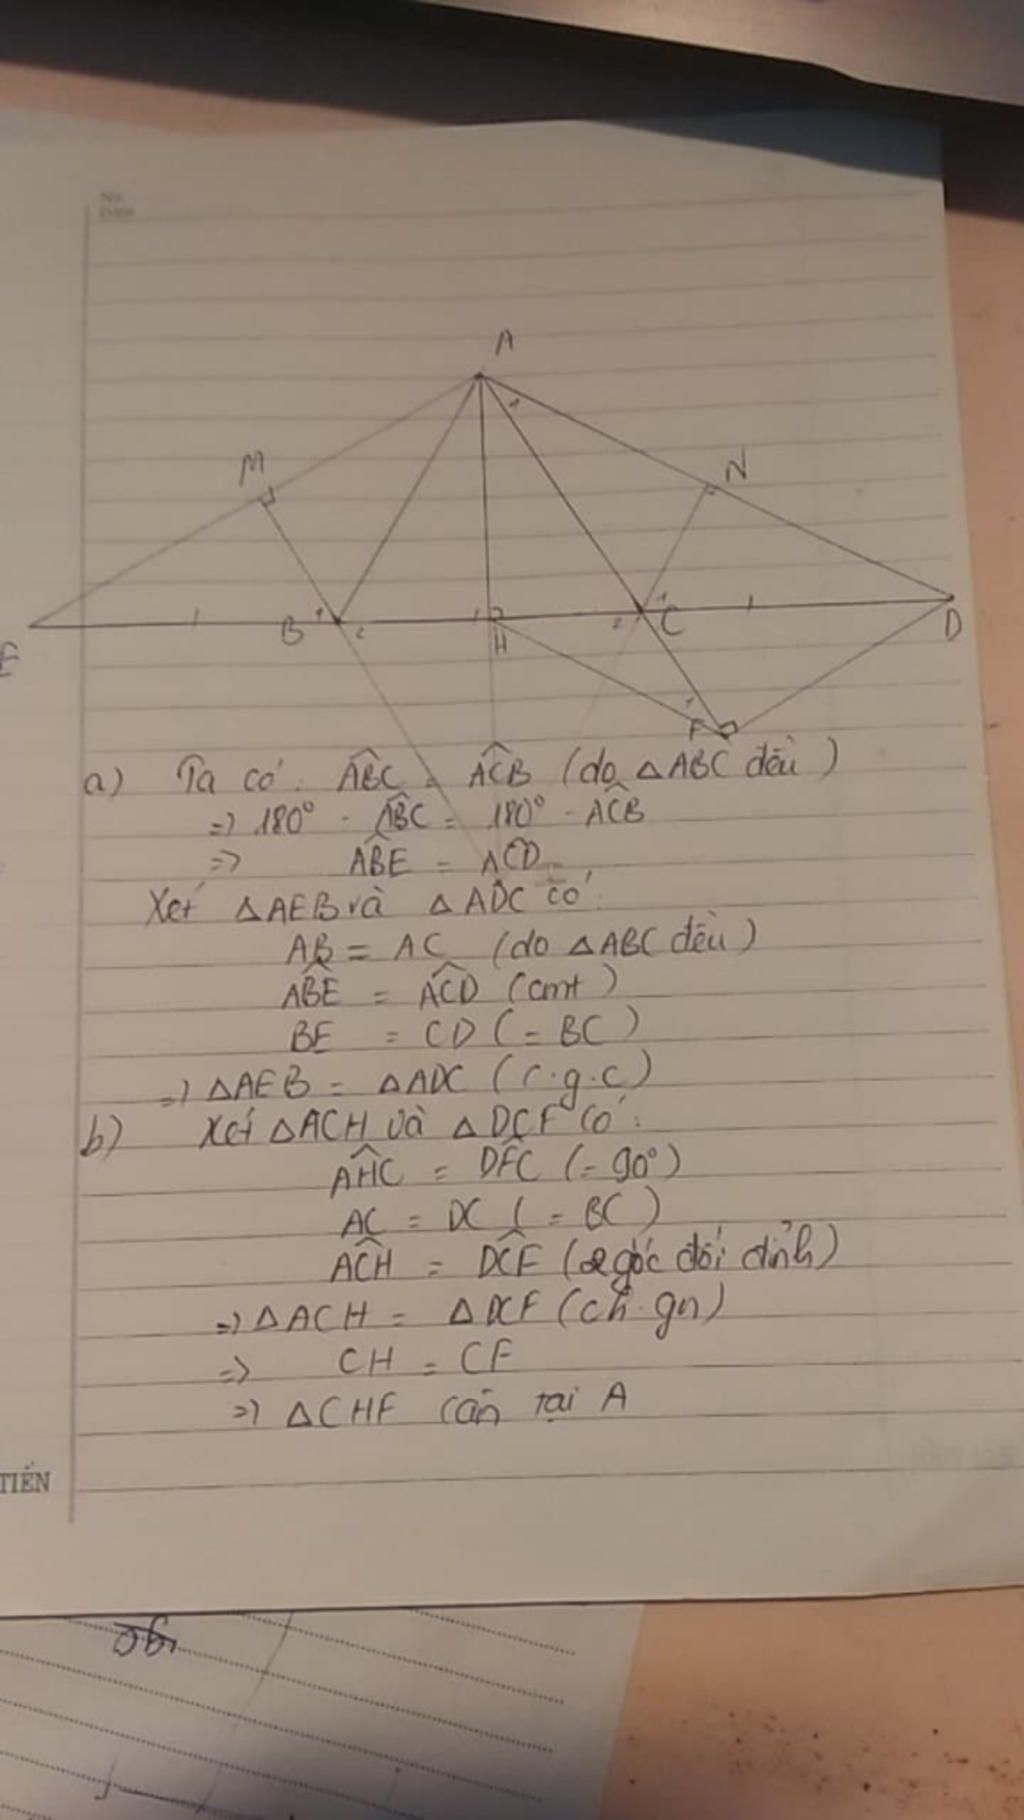 No.
Date
A
M
N
E
1
B
2
H
2
1
C
D
1
F
a) Ta có: ABC = ACB (do △ABC đều)
=> 180° - ABC = 180° - ACB
=> ABE = ACD
Xét △AEB và △ADC có:
AB = AC (do △ABC đều)
ABE = ACD (cmt)
BE = CD (= BC)
=> △AEB = △ADC (c.g.c)
b) Xét △ACH và △DCF có:
AHC = DFC (= 90°)
AC = DC (= BC)
ACH = DCF (2 góc đối đỉnh)
=> △ACH = △DCF (ch.gn)
=> CH = CF
=> △CHF cân tại A
TIẾN